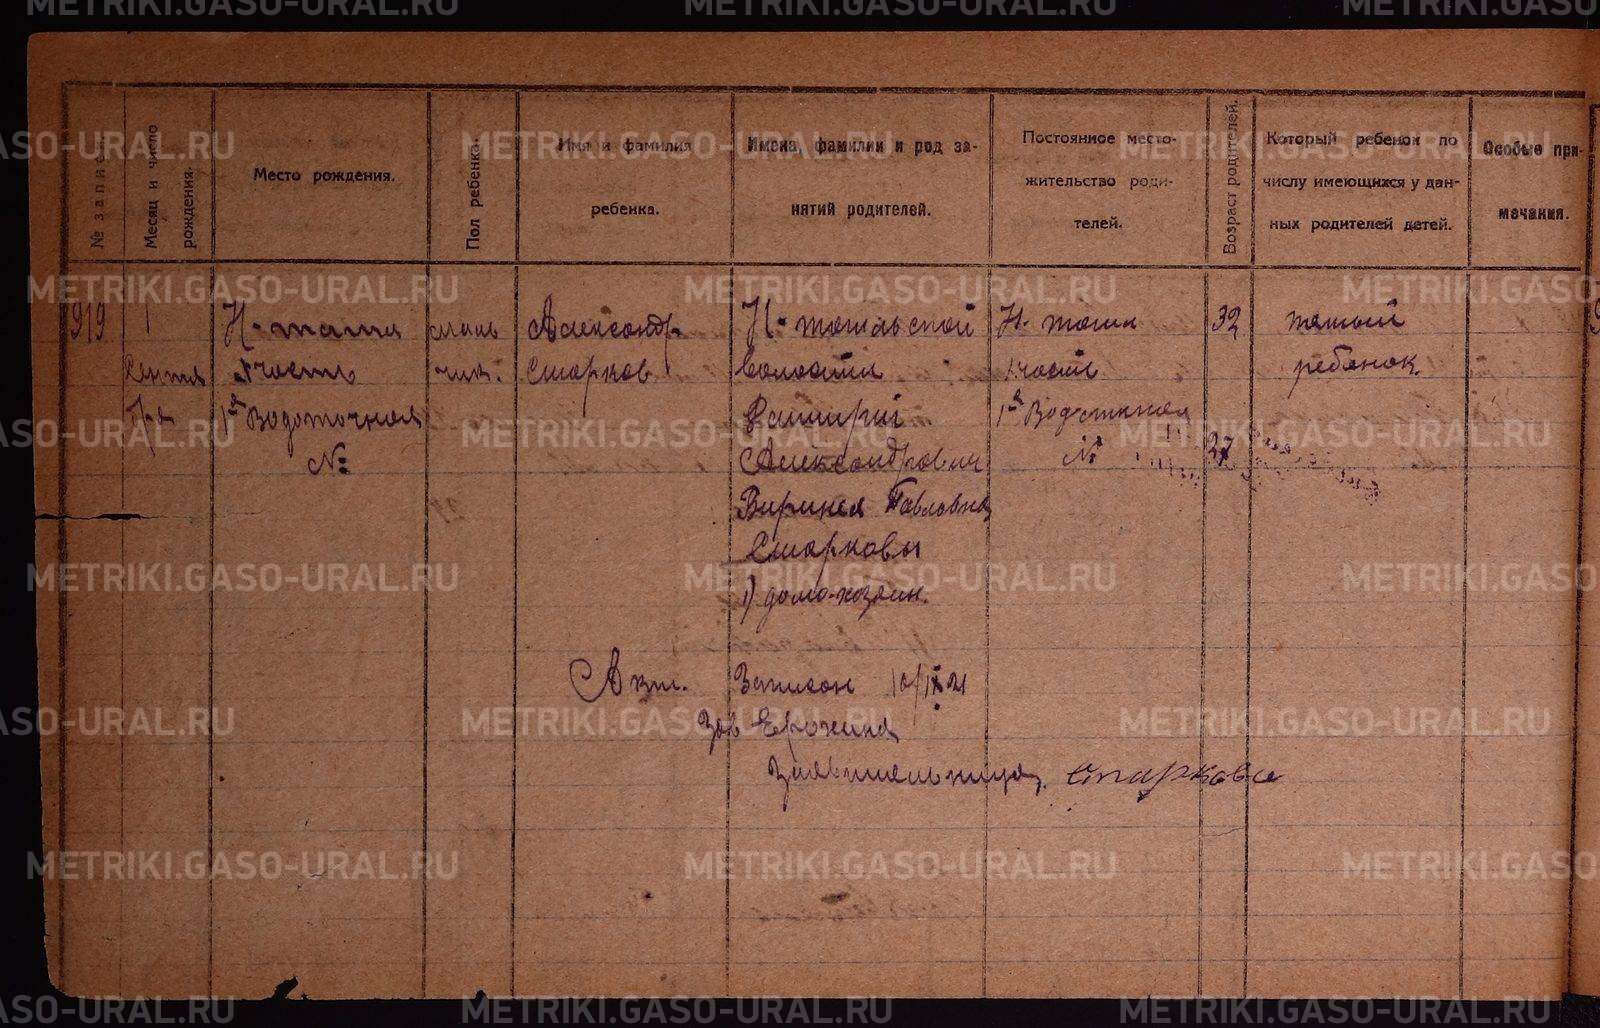 № записи.
Месяц и число рождения.
Место рождения.
Пол ребенка.
Имя и фамилия
ребенка.
Имена, фамилии и род за-
нятий родителей.
Постоянное место-
жительство роди-
телей.
Возраст родителей.
Который ребенок по
числу имеющихся у дан-
ных родителей детей.
Особые при-
мечания.
919
1
Сентя
бря
Н-тагил
1 часть
1ая Водоточная
№
маль
чик.
Александр
Старков
Н-тагильской
волости
Александрович
Виринея Павловна
Старковы
1) домо-хозяин.
Н-тагил
1 части
1ая Водоточная
№
32
37
пятый
ребенок.
Акт. Записан 10/IX 21
Зав Ерохина
Заявительница Старкова
METRIKI.GASO-URAL.RU